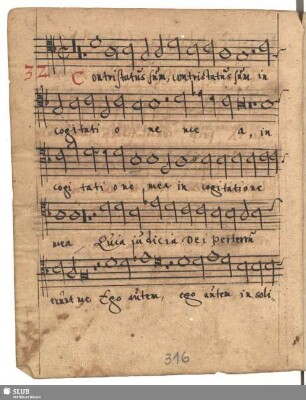 32
Contristatus sum, contristatus sum in
cogitati o ne me a, in
cogi tati one, mea in cogitatione
mea Quia judicia Dei perterru
erunt me Ego autem, ego autem in soli
316
SLUB